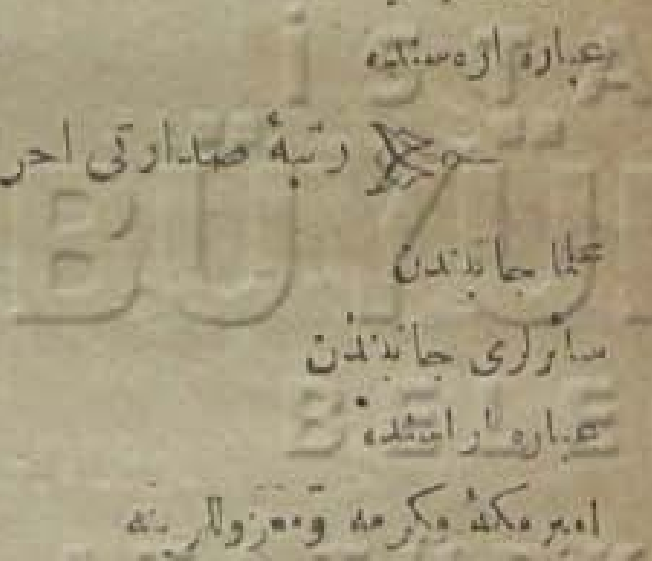 عباره اره سنده
رتبۀ صدارتی احر
علما جانبندن
سائرلری جانبندن
عباره اراسنده
امیر مکۀ مکرمه
BÜYÜ
BELE